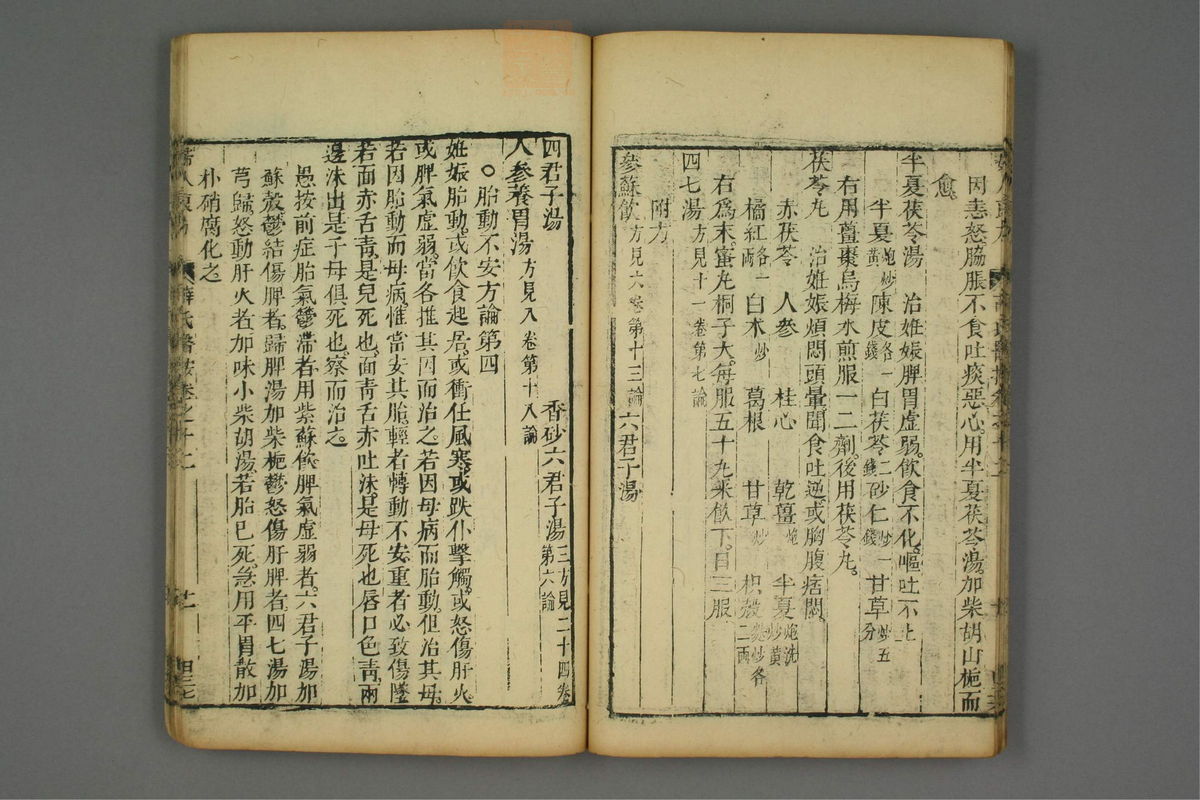 因恚怒脇脹不食吐痰惡心用半夏茯苓湯加柴胡山梔而
愈
半夏茯苓湯 治姙娠脾胃虛弱飲食不化嘔吐不止
半夏炮炒黃 陳皮各一錢 白茯苓二錢 砂仁炒一錢 甘草炒五分
右用薑棗烏梅水煎服一二劑後用茯苓丸
茯苓丸 治姙娠煩悶頭暈聞食吐逆或胸腹痞悶
赤茯苓 人參 桂心 乾薑炮 半夏炮洗炒黃
橘紅各一兩 白朮炒 葛根 甘草炒 枳殼麩炒各二兩
右爲末蜜丸桐子大每服五十丸米飲下日三服
四七湯方見十一卷第七論
附方
參蘇飲方見六卷第十三論 六君子湯
四君子湯 香砂六君子湯三方見二十四卷第六論
人參養胃湯方見八卷第十八論
○胎動不安方論第四
姙娠胎動或飲食起居或衝任風寒或跌仆擊觸或怒傷肝火
或脾氣虛弱當各推其因而治之若因母病而胎動但治其母
若因胎動而母病惟當安其胎輕者轉動不安重者必致傷墜
若面赤舌青是兒死也面青舌赤吐沫是母死也唇口色青兩
邊沫出是子母俱死也察而治之
愚按前症胎氣鬱滯者用紫蘇飲脾氣虛弱者六君子湯加
蘇殼鬱結傷脾者歸脾湯加柴梔鬱怒傷肝脾者四七湯加
芎歸怒動肝火者加味小柴胡湯若胎已死急用平胃散加
朴硝腐化之